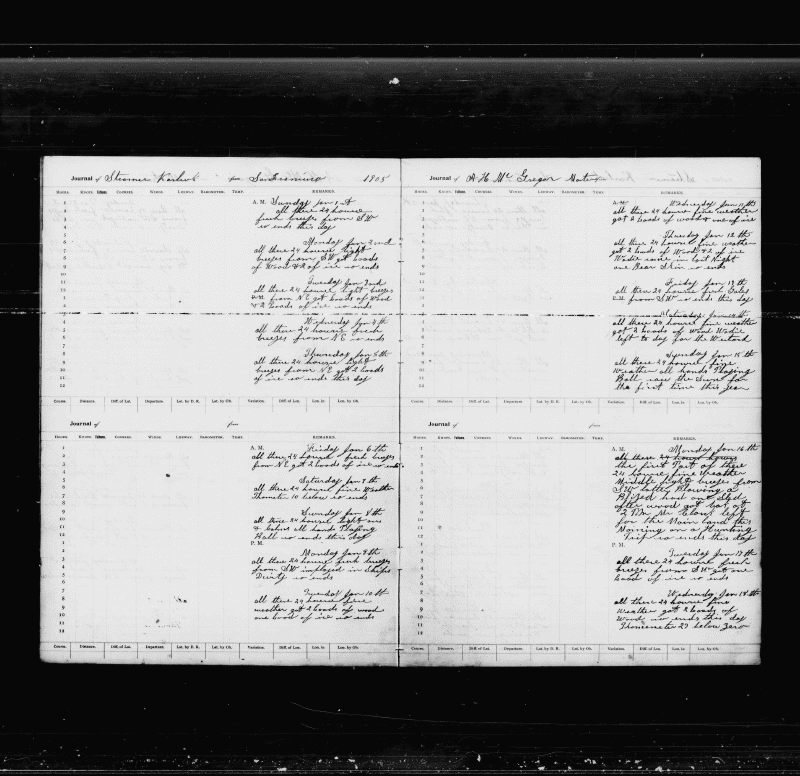 Journal of Steamer Karluk from San Francisco 1905
HOURS. KNOTS. Fathoms. COURSES. WINDS. LEEWAY. BAROMETER. TEMP. REMARKS.
A. M. Sunday Jan 1st
all these 24 hours
fresh breezes from SW
so ends this day
Monday Jan 2end
all these 24 hours light
breezes from SW got loads
of Wood & 2 of ice so ends
Tuesday Jan 3erd
all these 24 hours light breezes
P.M. from NE got loads of Wood
& 2 loads of ice so ends
Wednesday Jan 4th
all these 24 hours fresh
breezes from NE so ends
Thursday Jan 5th
all these 24 hours light
breezes from NE got 2 loads
of ice so ends this day
Course. Distance. Diff. of Lat. Departure. Lat. by D. R. Lat. by Ob. Variation. Diff. of Lon. Lon. in Lon. by Ob.
Journal of from
HOURS. KNOTS. Fathoms. COURSES. WINDS. LEEWAY. BAROMETER. TEMP. REMARKS.
A. M. Friday Jan 6th
all these 24 hours fresh breezes
from NE got 2 loads of ice so ends
Saturday Jan 7th
all these 24 hours fine Weather
Thometer 10 below so ends
Sunday Jan 8th
all these 24 hours light airs
& Calms all hands Playing
Ball so ends this day
P. M.
Monday Jan 9th
all these 24 hours fresh breezes
from SW imployed in Ships
Duity so ends
Tuesday Jan 10th
all these 24 hours fine
weather got 2 loads of wood
one load of ice so ends
Course. Distance. Diff. of Lat. Departure. Lat. by D. R. Lat. by Ob. Variation. Diff. of Lon. Lon. in Lon. by Ob.
Journal of A H Mc Gregor Mate
HOURS. KNOTS. Fathoms. COURSES. WINDS. LEEWAY. BAROMETER. TEMP. REMARKS.
A. M. Wednesday Jan 11th
all these 24 hours fine weather
got 2 loads of wood & one of ice
Thursday Jan 12th
all these 24 hours fine weather
got 2 loads of Wood & 2 of ice
Wadie came in last Night
one Bear Skin so ends
Friday Jan 13th
all these 24 hours first Gales
P.M. from SW so ends this day
Saturday Jan 14th
all these 24 hours fine weather
got 2 loads of Wood Wadie
left to day for the Westard
Sunday Jan 15th
all these 24 hours fine
Weather all hands Playing
Ball saw the Sun for
the first time this year
Course. Distance. Diff. of Lat. Departure. Lat. by D. R. Lat. by Ob. Variation. Diff. of Lon. Lon. in Lon. by Ob.
Journal of from
HOURS. KNOTS. Fathoms. COURSES. WINDS. LEEWAY. BAROMETER. TEMP. REMARKS.
A. M. Monday Jan 16th
all these 24 hours
the first Part of these
24 hours fine Weather
Middle light breezes from
SW latter Blowing a
Blizzed had one Sled
after wood got bat at
2 PM Mr Close left
for the Main land this
Morning on a Hunting
Trip so ends this day
P. M.
Tuesday Jan 17th
all these 24 hours fresh
breezes from SW got one
load of ice so ends
Wednesday Jan 18th
all these 24 hours fine
Weather got 2 loads of
Wood so ends this day
Thomemeter 27 below Zero
Course. Distance. Diff. of Lat. Departure. Lat. by D. R. Lat. by Ob. Variation. Diff. of Lon. Lon. in Lon. by Ob.